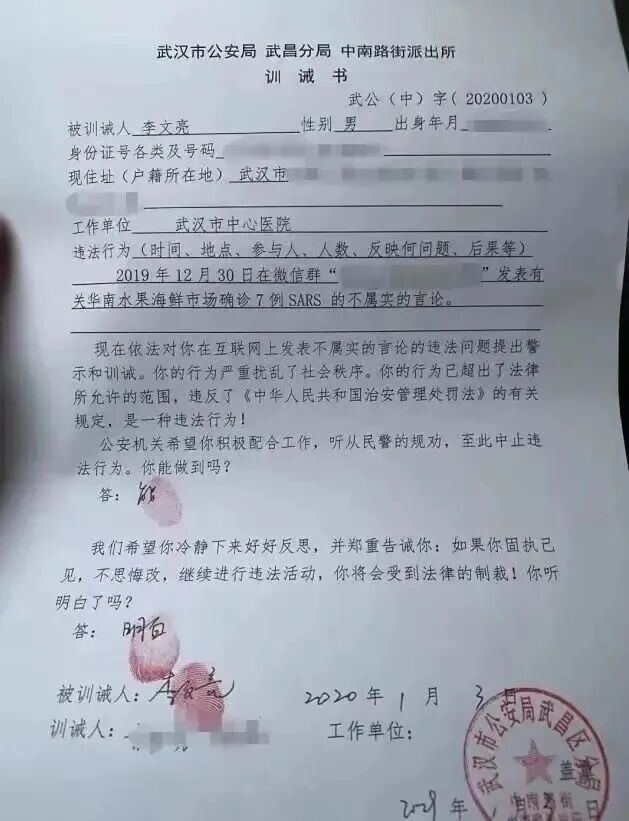 武汉市公安局 武昌分局 中南路街派出所
训 诫 书
武公（中）字（20200103）
被训诫人 李文亮 性别 男 出身年月
身份证号各类及号码
现住址（户籍所在地） 武汉市
工作单位 武汉市中心医院
违法行为（时间、地点、参与人、人数、反映何问题、后果等）
2019 年 12 月 30 日在微信群“ ”发表有
关华南水果海鲜市场确诊 7 例 SARS 的不属实的言论。
现在依法对你在互联网上发表不属实的言论的违法问题提出警
示和训诫。你的行为严重扰乱了社会秩序。你的行为已超出了法律
所允许的范围，违反了《中华人民共和国治安管理处罚法》的有关
规定，是一种违法行为！
公安机关希望你积极配合工作，听从民警的规劝，至此中止违
法行为。你能做到吗？
答： 能
我们希望你冷静下来好好反思，并郑重告诫你：如果你固执己
见，不思悔改，继续进行违法活动，你将会受到法律的制裁！你听
明白了吗？
答： 明白
被训诫人： 李文亮 2020 年 1 月 3 日
训诫人： 工作单位：
武汉市公安局武昌区分局
盖章
中南路街
年 月 日